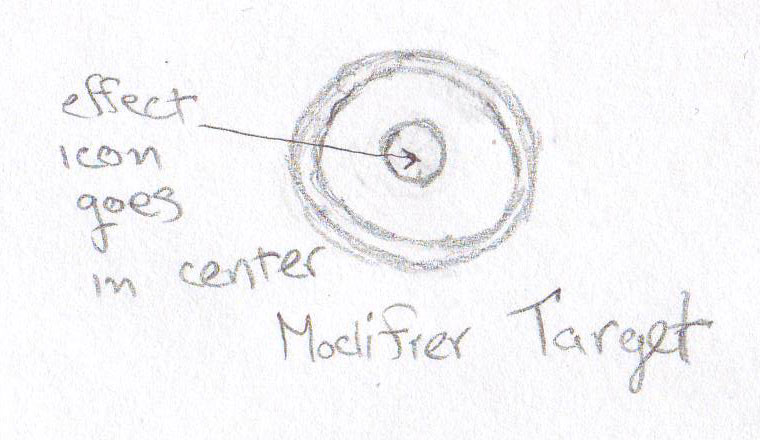 effect
icon
goes
in center
Modifier Target